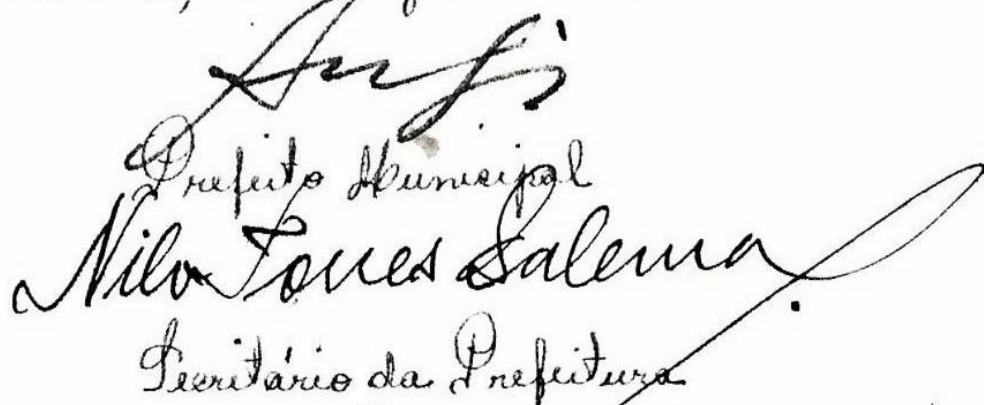 Prefeito Municipal
Nilo Torres Salema
Secritário da Prefeitura